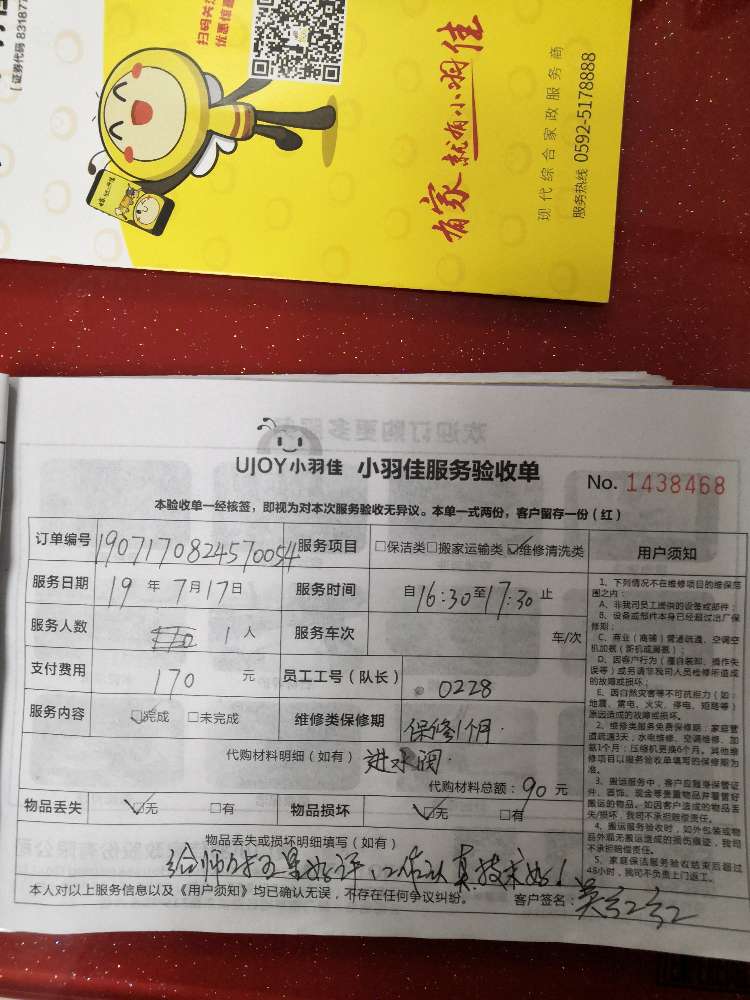 [证券代码 83187
扫码关
优惠信
有家就有小羽佳
现代综合家政服务商
服务热线 0592-5178888
UJOY小羽佳 小羽佳服务验收单
No. 1438468
本验收单一经核签，即视为对本次服务验收无异议。本单一式两份，客户留存一份（红）
订单编号 1907170824570054 服务项目 □保洁类□搬家运输类☑维修清洗类
服务日期 19 年 7 月 17 日 服务时间 自 16:30 至 17:30 止
服务人数 1 人 服务车次 年/次
支付费用 170 元 员工工号（队长） 0228
服务内容 ☑完成 □未完成 维修类保修期 保修1个月
代购材料明细（如有） 进水阀
代购材料总额：90 元
物品丢失 ☑无 □有 物品损坏 ☑无 □有
物品丢失或损坏明细填写（如有）
给师傅五星好评，工作认真技术好！
本人对以上服务信息以及《用户须知》均已确认无误，不存在任何争议纠纷。 客户签名：吴红红
用户须知
1、下列情况不在维修项目的维保范
围之内：
A、非我司员工提供的设备或部件；
B、设备或部件本身已经超过出厂保
修期；
C、商业（商铺）管道疏通、空调空
机加氨（新机或漏氨）；
D、因客户行为（擅自装卸、操作失
误等）或务请非我司人员检修所造成
的故障或损坏；
E、因自然灾害等不可抗拒力（如：
地震、雷电、火灾、停电、短路等）
原因造成的故障或损坏。
2、维修类服务免费保修期：家庭管
道疏通3天，水电维修、空调维修、加
氨1个月；压缩机更换6个月。其他维
修项目以服务验收单填写的保修期为
准。
3、搬运服务中，客户应随身保管证
件、首饰、现金等贵重物品并看管好
搬运的物品。如因客户造成的物品丢
失/损坏，我司不承担赔偿责任。
4、搬运服务验收时，如外包装或物
品外观无搬运造成的损伤痕迹，我司
不承担赔偿责任。
5、家庭保洁服务验收结束后超过
48小时，我司不负责上门返工。